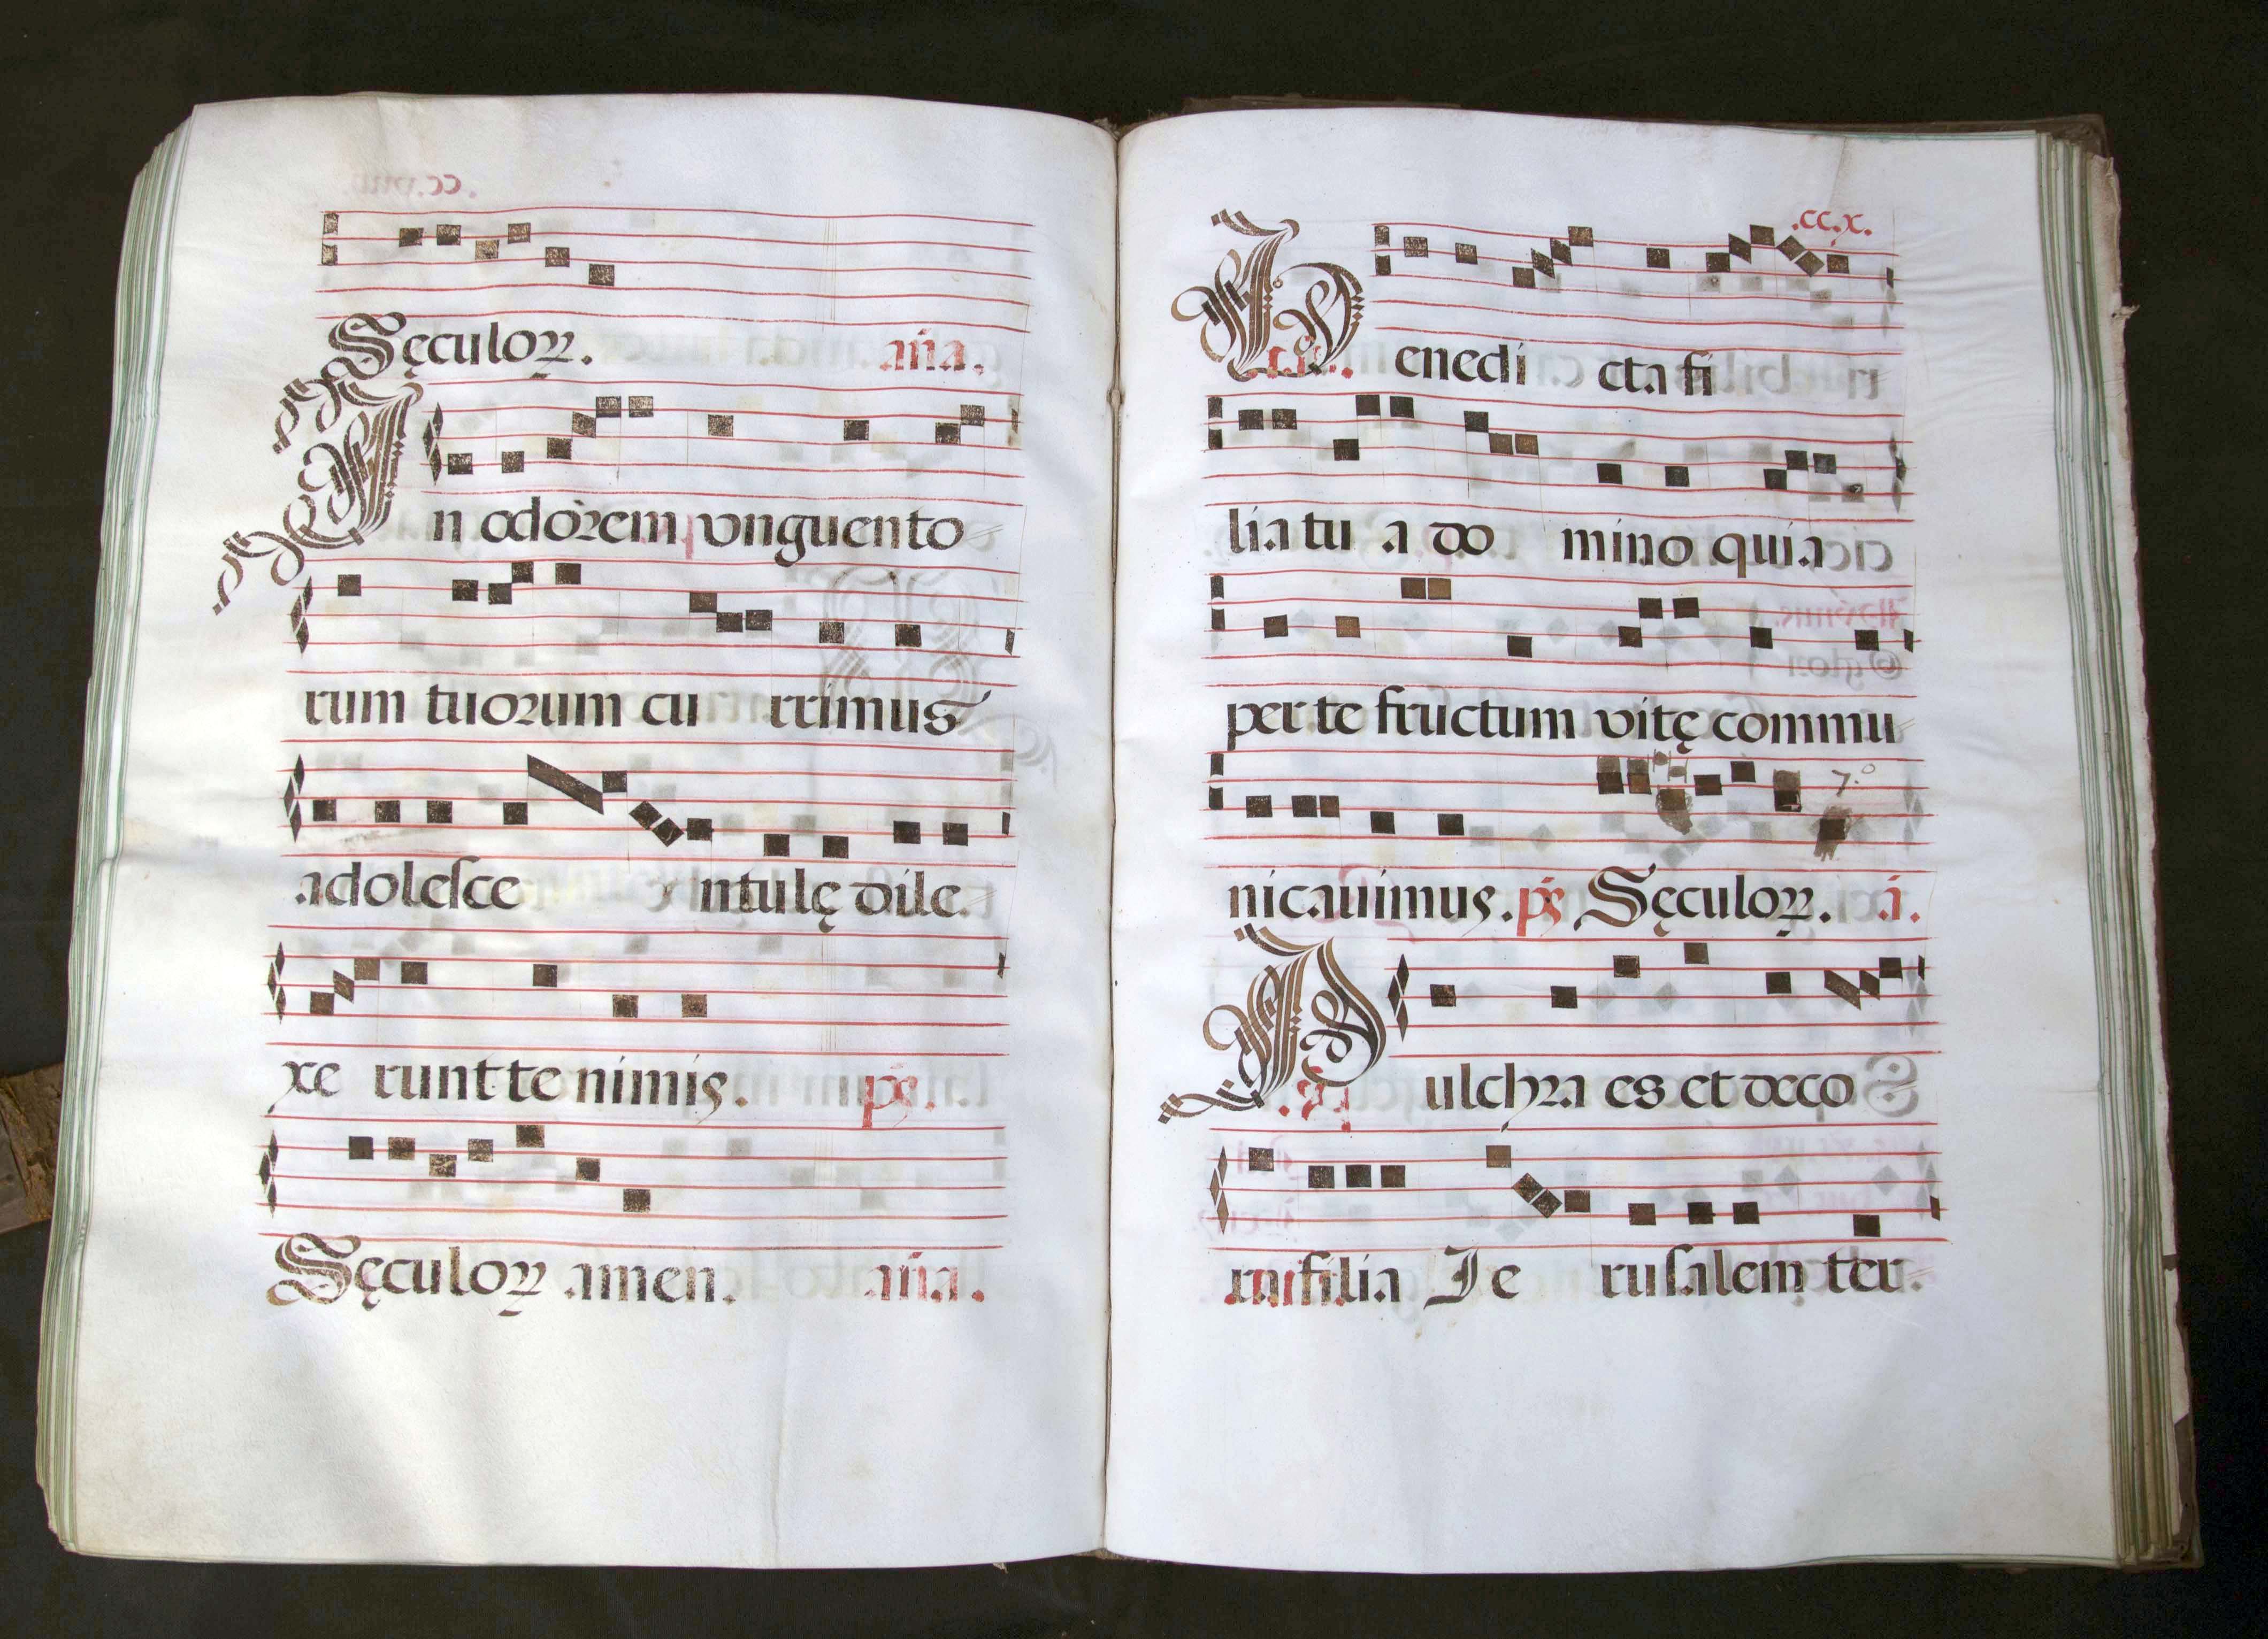 Sęculoꝝ. aña.
In odorem vnguento
rum tuorum cu rrimus
adoleſce ntulę dile
xe runt te nimis. ps.
Sęculoꝝ amen. aña.
.cc.x.
Benedi cta fi
lia tu a do mino quia
per te fructum vitę commu
nicauimus. ps Sęculoꝝ. a.
7.º
Pulchra es et deco
ra filia Ie ruſalem ter.